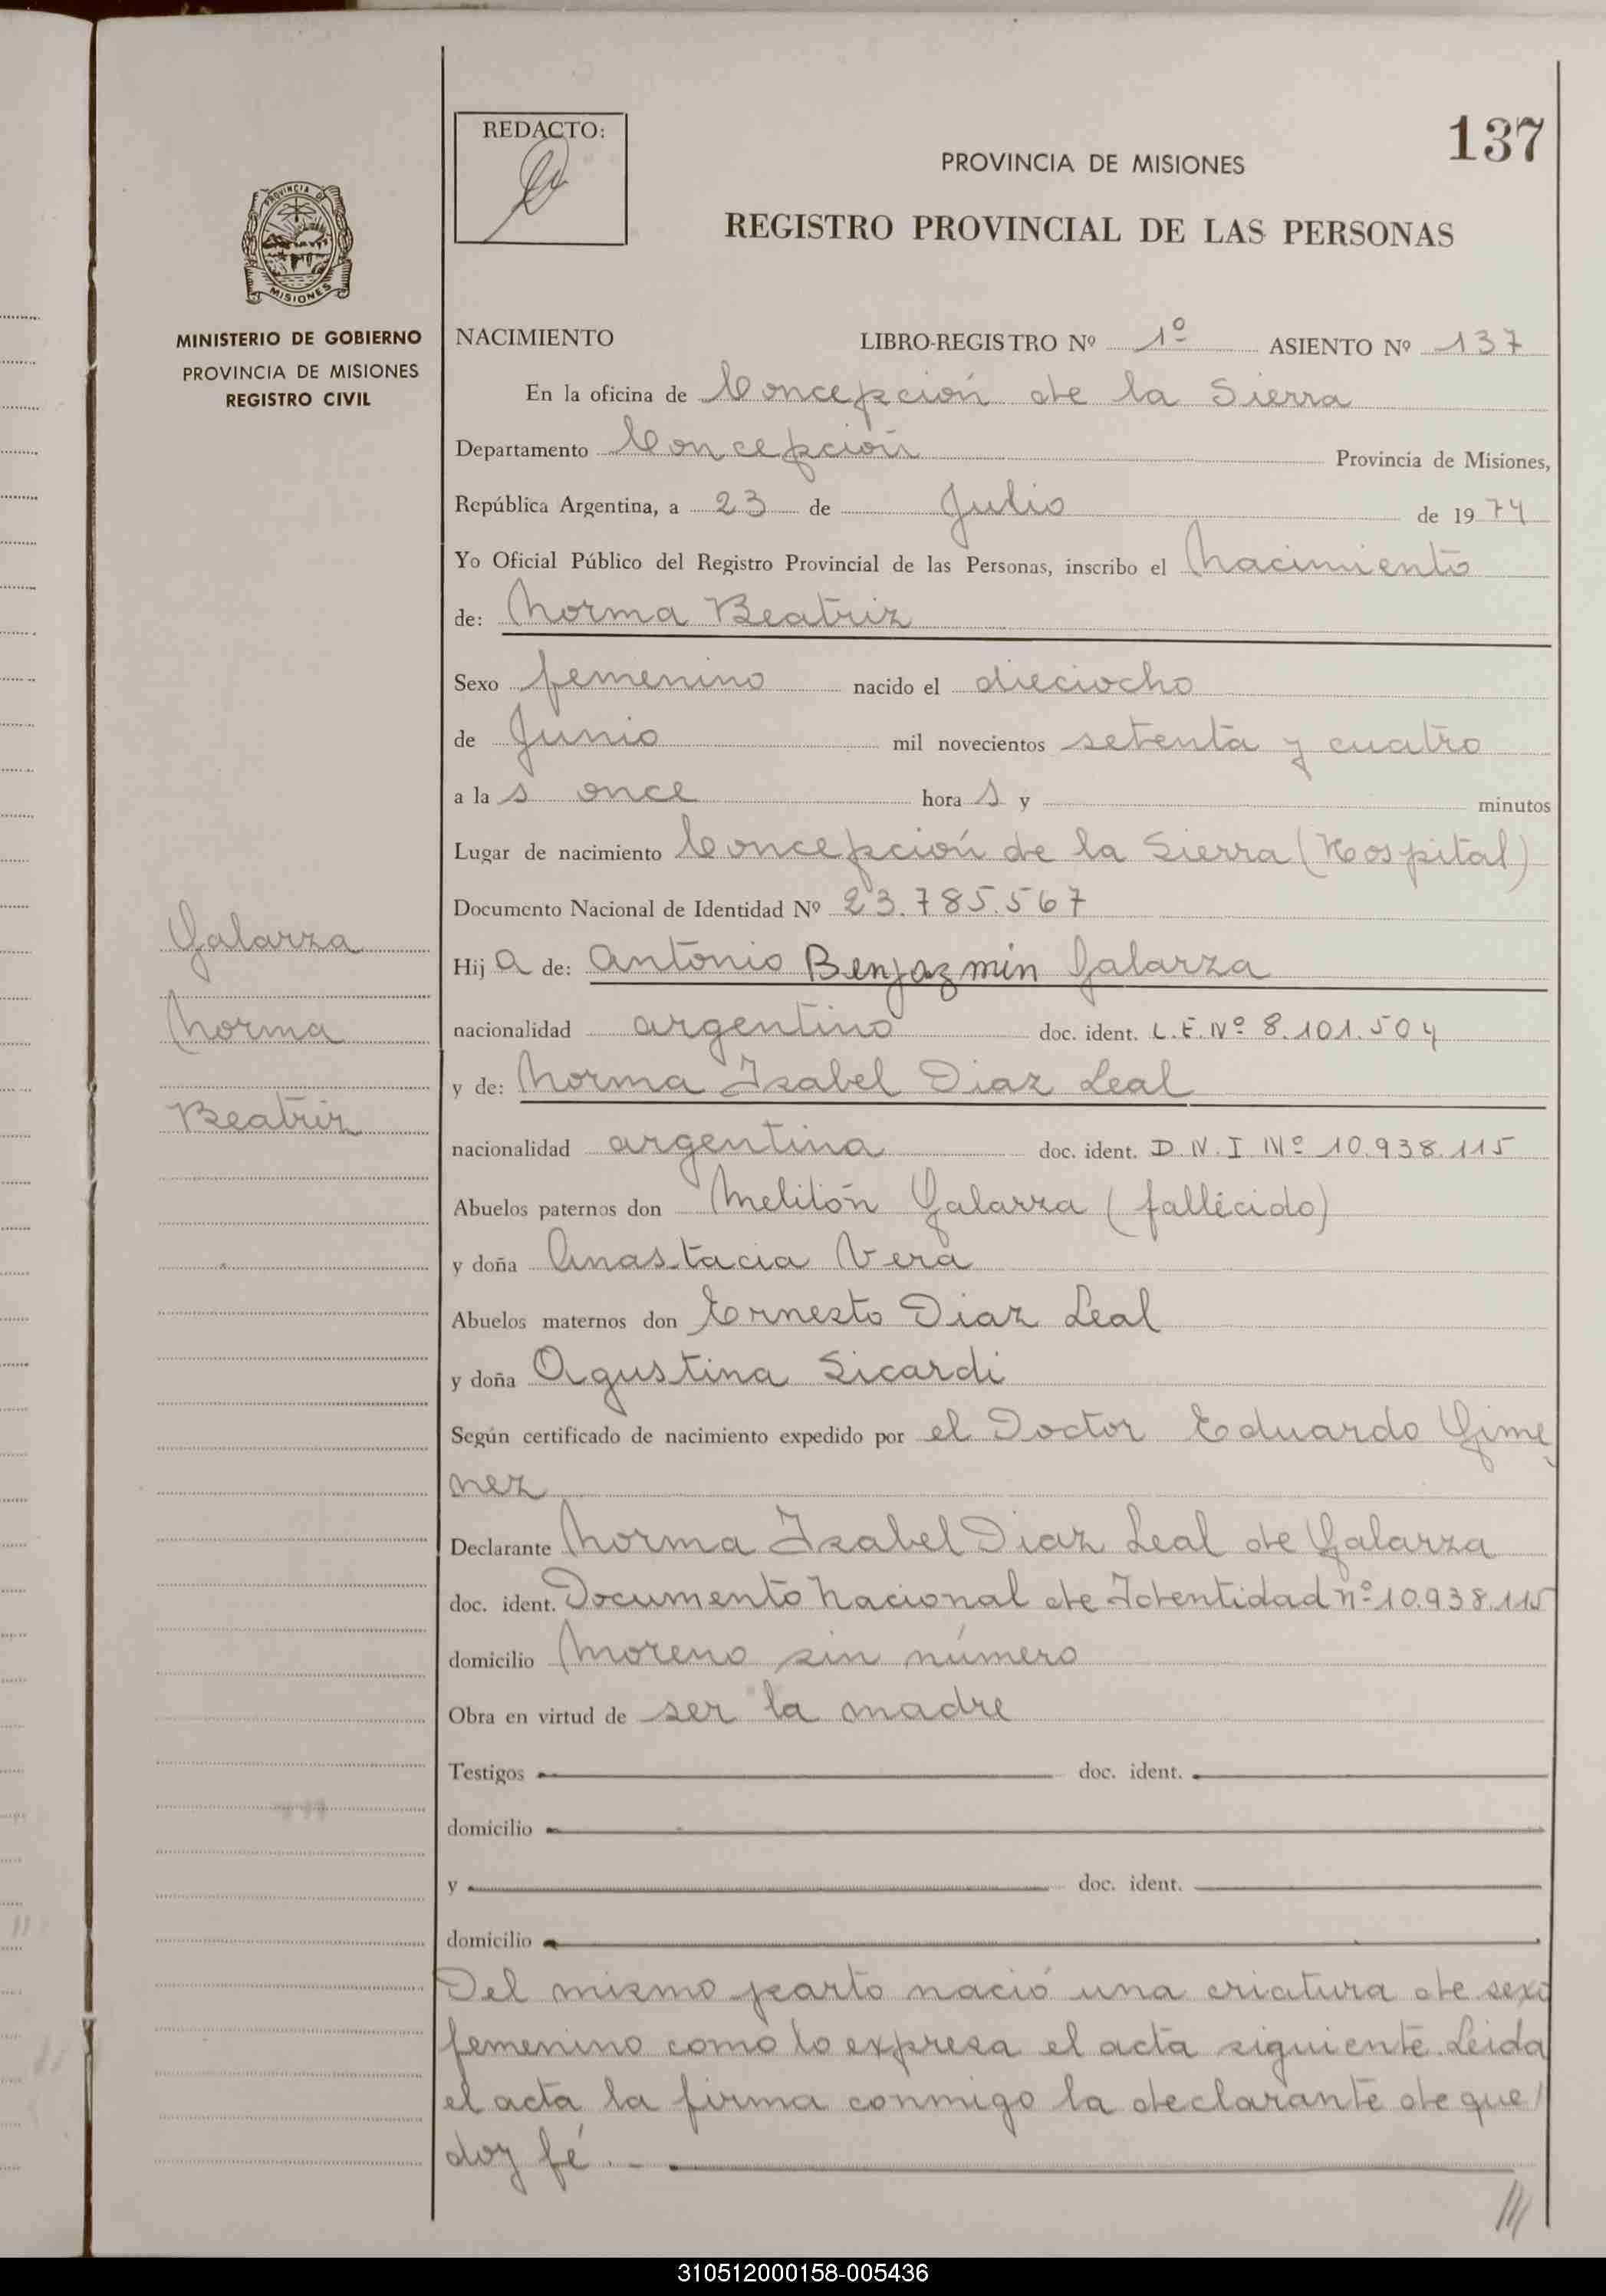 REDACTO:
137
PROVINCIA DE MISIONES
REGISTRO PROVINCIAL DE LAS PERSONAS
PROVINCIA DE
MISIONES
MINISTERIO DE GOBIERNO
PROVINCIA DE MISIONES
REGISTRO CIVIL
NACIMIENTO LIBRO-REGISTRO Nº 1º ASIENTO Nº 137
En la oficina de Concepción de la Sierra
Departamento Concepción Provincia de Misiones,
República Argentina, a 23 de Julio de 1974
Yo Oficial Público del Registro Provincial de las Personas, inscribo el Nacimiento
de: Norma Beatriz
Sexo femenino nacido el dieciocho
de Junio mil novecientos setenta y cuatro
a la s once hora s y minutos
Lugar de nacimiento Concepción de la Sierra (Hospital)
Documento Nacional de Identidad Nº 23.785.567
Galarza
Hij a de: Antonio Benjazmin Galarza
Norma
nacionalidad argentino doc. ident. L.E. Nº 8.101.504
y de: Norma Isabel Diaz Leal
Beatriz
nacionalidad argentina doc. ident. D.N.I Nº 10.938.115
Abuelos paternos don Melitón Galarza (fallécido)
y doña Anastacia Vera
Abuelos maternos don Ernesto Diaz Leal
y doña Agustina Sicardi
Según certificado de nacimiento expedido por el Doctor Eduardo Gime
nez
Declarante Norma Isabel Diaz Leal de Galarza
doc. ident. Documento Nacional de Identidad nº 10.938.115
domicilio Moreno sin número
Obra en virtud de ser la madre
Testigos doc. ident.
domicilio
y doc. ident.
domicilio
Del mismo parto nació una criatura de sexo
femenino como lo expresa el acta siguiente. Leida
el acta la firma conmigo la declarante de que
doy fé. -
///
310512000158-005436